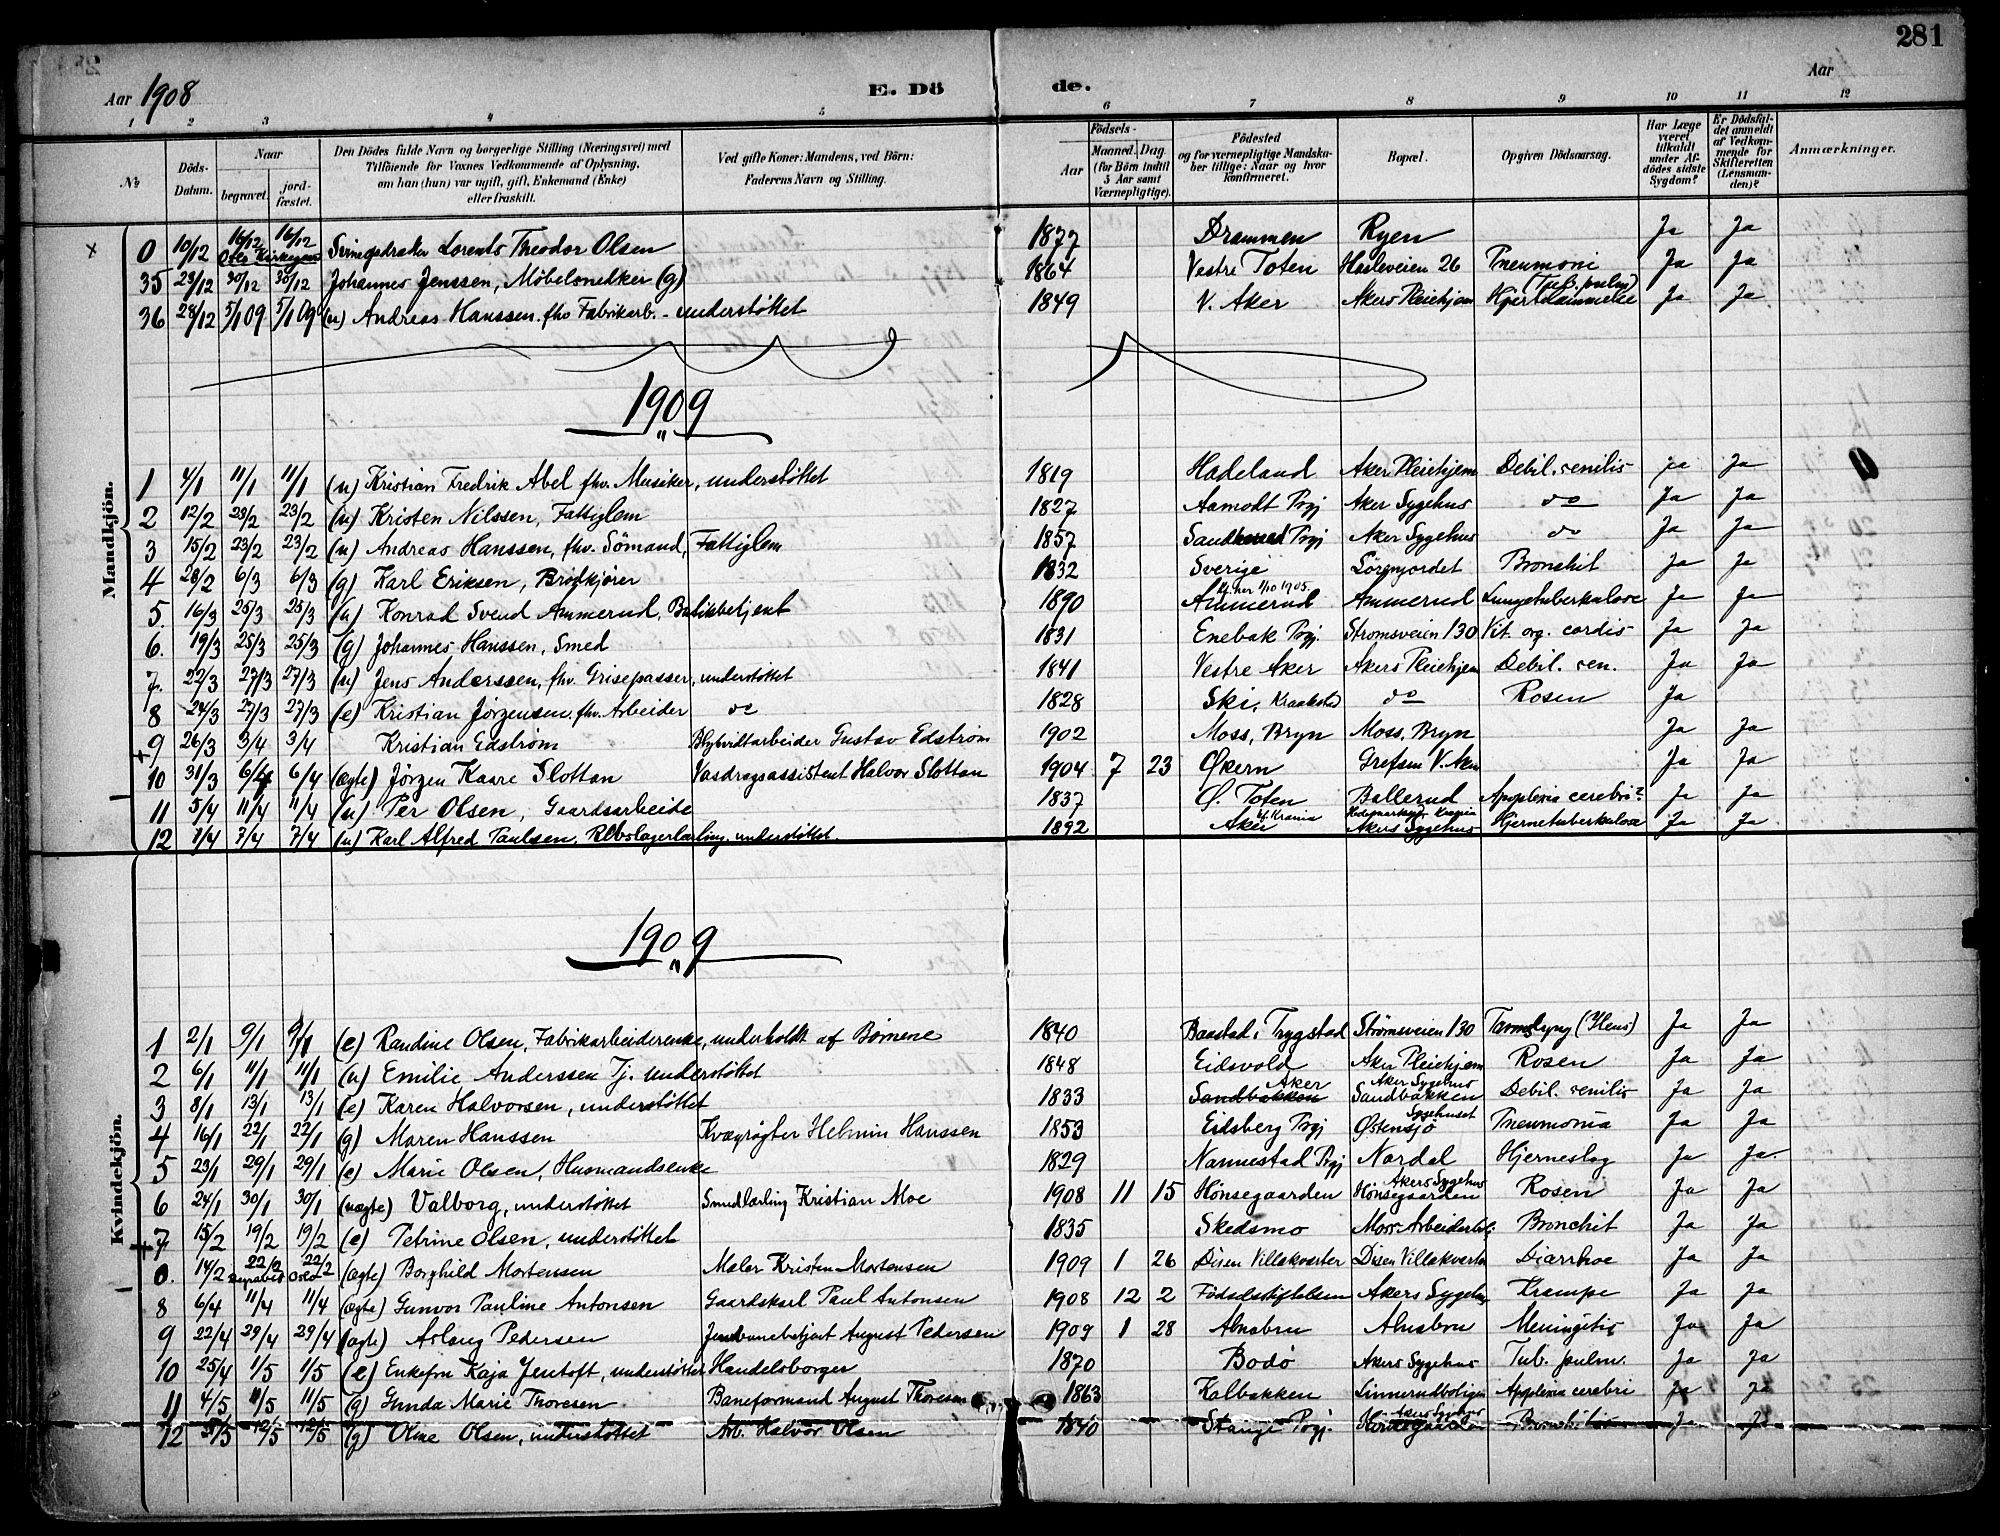 281
Aar 1908 E. Dö de. Aar
1 2 3 4 5 6 7 8 9 10 11 12
№ Döds-Datum. Naar begravet. jord-fæstet. Den Dödes fulde Navn og borgerlige Stilling (Næringsvei) med Tilföiende for Voxnes Vedkommende af Oplysning, om han (hun) var ugift, gift, Enkemand (Enke) eller fraskilt. Ved gifte Koner: Mandens, ved Börn: Faderens Navn og Stilling. Födsels- Aar Maaned. Dag. (for Börn indtil 5 Aar samt Værnepligtige). Födested og for værnepligtige Mandskaber tillige: Naar og hvor konfirmeret. Bopæl. Opgiven Dödsaarsag. Har Læge været tilkaldt under Afdödes sidste Sygdom? Er Dödsfaldet anmeldt af Vedkommende for Skifteretten (Lensmanden)? Anmærkninger.
Mandkjön.
x 0 10/12 16/12 16/12 Lorents Theodor Olsen 1877 Drammen Ryen Ja Ja
Oslo Kirkegaard
35 23/12 30/12 30/12 Johannes Jenssen, Møbelsnedker (g) 1864 Vestre Toten Hasleveien 26 Pneumoni (Tub. pulm) Ja Ja
36 28/12 5/1 09 5/1 09 (u) Andreas Hanssen. fhv Fabrikarb. - understøttet 1849 V. Aker Akers Pleiehjem Hjertelammelse Ja Ja
1909
1 4/1 11/1 11/1 (u) Kristian Fredrik Abel fhv. Musiker, understøttet 1819 Hadeland Aker Pleiehjem Debil. senilis ja Ja
2 12/2 23/2 23/2 (u) Kristen Nilssen, Fattiglem 1827 Aamodt Prgj Aker Sygehus do Ja Ja
3 15/2 23/2 23/2 (u) Andreas Hanssen, fhv. Sömand, Fattiglem 1857 Prgj Aker Sygehus do Ja Ja
4 28/2 6/3 6/3 (g) Karl Eriksen, Brödkjører 1832 Sverige Bronchit Ja Ja
5. 16/3 25/3 25/3 (u) Konrad Svend Ammerud, Butikbetjent 1890 Ammerud 1/10 1905 Ammerud Lungetuberkulose Ja Ja
6. 19/3 25/3 25/3 (g) Johannes Hanssen, Smed 1831 Enebak Prgj. Strømsveien 130 Vit. org. cordis Ja Ja
7. 22/3 27/3 27/3 (u) Jens Anderssen, fhv. Grisepasser, understøttet 1841 Vestre Aker Akers Pleiehjem Debil. sen. Ja Ja
8 24/3 27/3 27/3 (e) Kristian Jörgensen. fhv. Arbeider do 1828 Ski, Kraakstad do Rosen Ja
9 26/3 3/4 3/4 Kristian Edström Blyhvidtarbeider Gustav Edström 1902 Moss, Bryn Moss, Bryn Ja Ja
+ 10 31/3 6/4 6/4 (ægte) Jörgen Kaare Slottan Halvor Slottan 1904 7 23 Økern Grefsen V. Aker Ja Ja
11 5/4 11/4 11/4 (u) Per Olsen, Gaardsarbeide 1837 Ø. Toten Ballerud Apoplexia cerebri? Ja Ja
12 1/4 7/4 7/4 (u) Karl Alfred Paulsen, Rebslagerlærling, understøttet. 1892 Aker Akers Sygehus Hjernetuberkulose Ja Ja
Kvindekjön.
1909
1 2/1 9/1 9/1 (e) Randine Olsen, Fabrikarbeiderenke, underholdt af Børnene 1840 Baastad i Trygstad Strømsveien 130 Tarmslyng (Ileus) Ja Ja
2 6/1 11/1 11/1 (u) Emilie Anderssen Tj. understøttet 1848 Eidsvold Aker Pleiehjem Rosen Ja Ja
3 8/1 13/1 13/1 (e) Karen Halvorsen, understøttet 1833 Sandbakken Aker Aker Sygehus Sandbakken Debil. senilis Ja Ja
4 16/1 22/1 22/1 (g) Maren Hanssen Kvægrøgter Helmin Hanssen 1853 Eidsberg Prgj Østensjø Sygehuset Pneumonia Ja Ja
5 23/1 29/1 29/1 (e) Marie Olsen, Husmandsenke 1829 Nannestad Prgj Nordal Hjerneslag Ja Ja.
6 24/1 30/1 30/1 (uægte) Valborg, understøttet Smedlærling Kristian Moe 1908 11 15 Hönsegaarden Akers Sygehus Hönsegaarden Rosen Ja Ja
7 15/2 19/2 19/2 (e) Petrine Olsen, understøttet 1835 Skedsmo Bronchit Ja Ja
+ 0. 14/2 22/2 22/2 Oslo (ægte) Borghild Mortensen Maler Kristen Mortensen 1909 1 26 Disen Villakvarter Disen Villakvarter Diarrhoe Ja Ja
8 6/4 11/4 11/4 (ægte) Gunvor Pauline Antonsen Gaardskarl Paul Antonsen 1908 12 2 Födselsstiftelsen Akers Sygehus Krampe Ja Ja
9 22/4 29/4 29/4 (ægte) Aslaug Pedersen Jernbanebetjent August Pedersen 1909 1 28 Alnabru Alnabru Meningitis Ja Ja
10 25/4 1/5 1/5 (e) Enkefru Kaja Jentoft, understøttet Handelsborger 1870 Bodö Akers Sygehus Tub. pulm. Ja Ja
11 4/5 11/5 11/5 (g) Gunda Marie Thoresen Baneformand August Thoresen 1863 Kalbakken Linnerudboligen Apoplexia cerebri Ja Ja
12 12/5 12/5 (g) Oline Olsen, understøttet Arb. Halvor Olsen 1840 Stange Prgj. Akers Sygehus Bronchitis Ja Ja